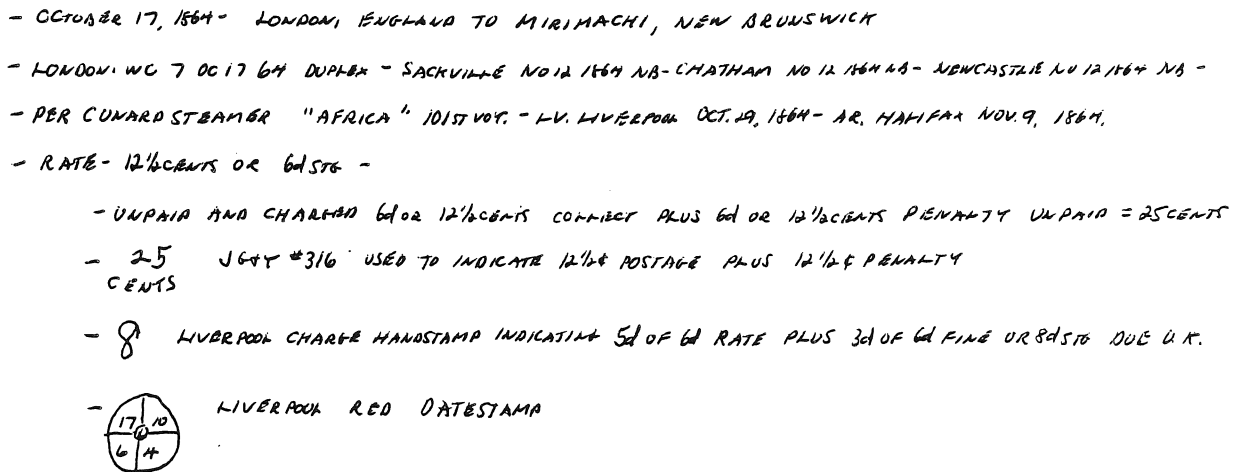 - OCTOBER 17, 1864 - LONDON, ENGLAND TO MIRIMACHI, NEW BRUNSWICK
- LONDON. WC 7 OC 17 64 DUPLEX - SACKVILLE NO 12 1864 NB - CHATHAM NO 12 1864 NB - NEWCASTLE NO 12 1864 NB -
- PER CUNARD STEAMER "AFRICA" 101ST VOY. - LV. LIVERPOOL OCT. 29, 1864 - AR. HALIFAX NOV. 9, 1864.
- RATE - 12 1/2 CENTS OR 6d STG -
- UNPAID AND CHARGED 6d OR 12 1/2 CENTS CORRECT PLUS 6d OR 12 1/2 CENTS PENALTY UNPAID = 25 CENTS
- 25 CENTS #316 USED TO INDICATE 12 1/2 ¢ POSTAGE PLUS 12 1/2 ¢ PENALTY
- 8 LIVERPOOL CHARGE HANDSTAMP INDICATING 5d OF 6d RATE PLUS 3d OF 6d FINE OR 8d STG DUE U.K.
- 17 10 6 4 LIVERPOOL RED DATESTAMP